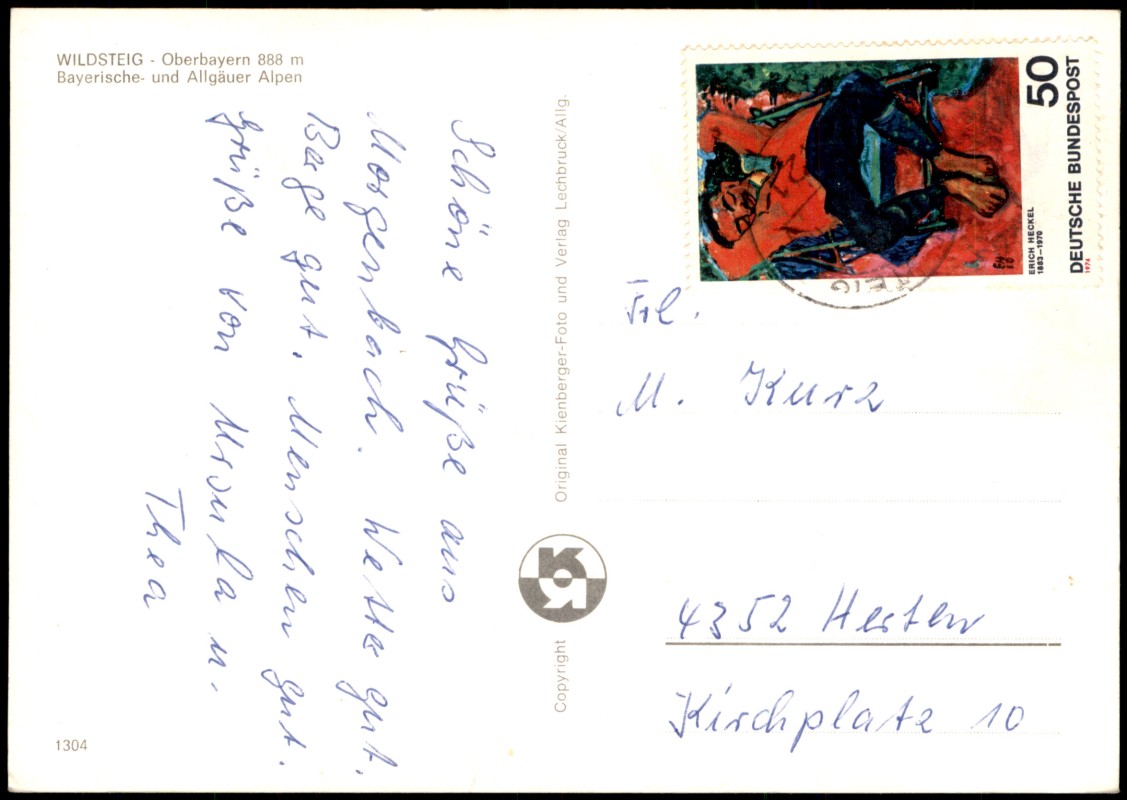 WILDSTEIG - Oberbayern 888 m
Bayerische- und Allgäuer Alpen
Schöne Grüße aus
Morgenbach. Wetter gut.
Berge gut. Menschen gut.
Grüße von Ursula u.
Thea
1304
Copyright Original Kienberger-Foto und Verlag Lechbruck/Allg.
50
DEUTSCHE BUNDESPOST
ERICH HECKEL
1883-1970
1974
EH
10
EIG
Frl.
M. Kurz
4352 Herten
Kirchplatz 10